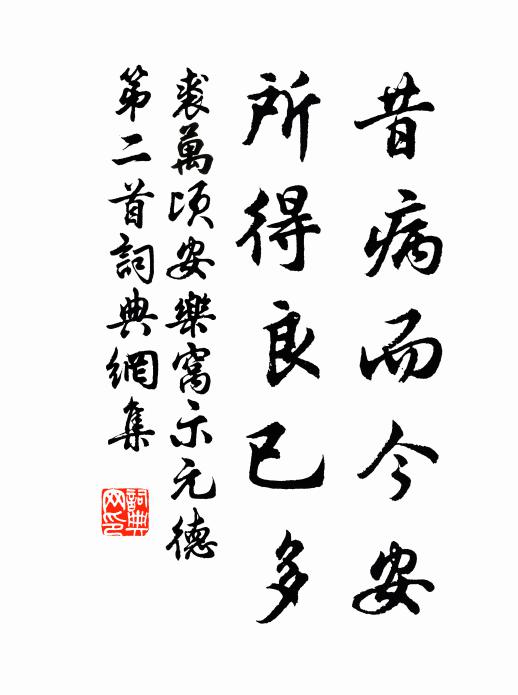 昔病而今安
所得良已多
裘萬頃安樂窩示元德
第二首詞典網集
詞典網印